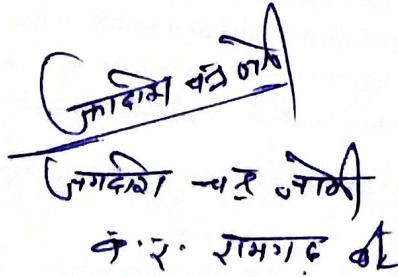 जगदीश चन्द्र जोशी
जगदीश चन्द्र जोशी
क. र. रामगढ़